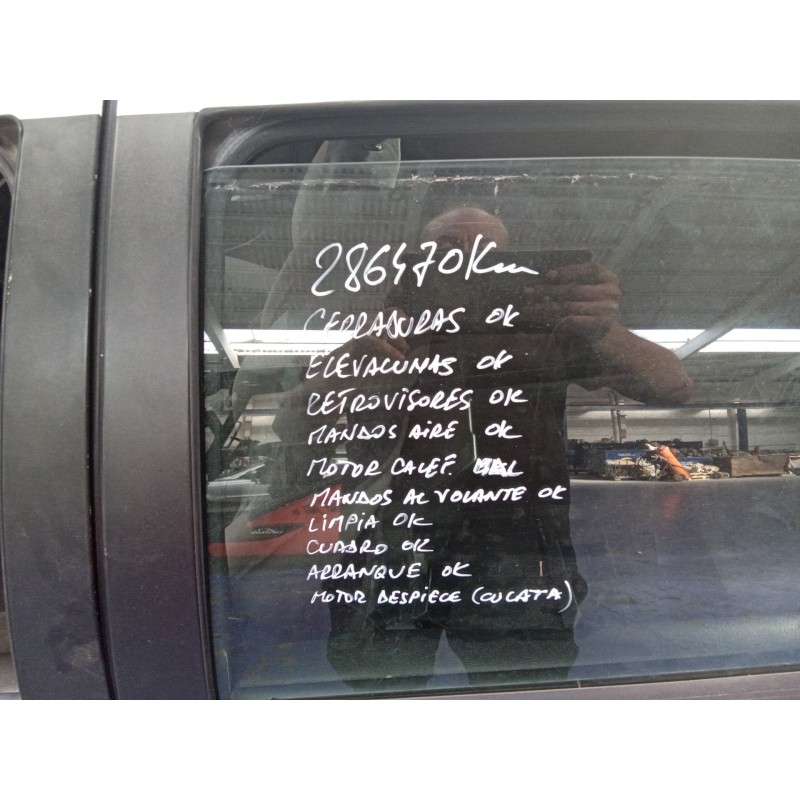 286470Km
CERRADURAS OK
ELEVALUNAS OK
RETROVISORES OK
MANDOS AIRE OK
MOTOR CALEF.
MANDOS AL VOLANTE OK
LIMPIA OK
CUADRO OK
ARRANQUE OK
MOTOR DESPIECE (CULATA)